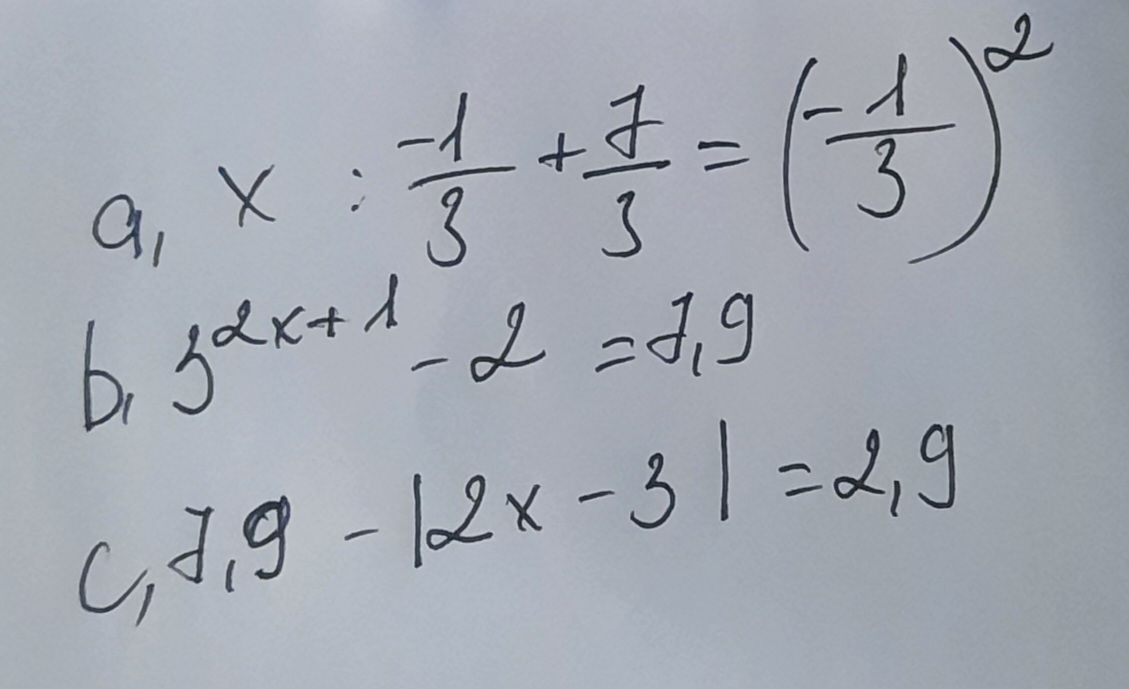 a, x : \frac{-1}{3} + \frac{7}{3} = \left(\frac{-1}{3}\right)^2
b, 3^{2x+1} - 2 = 7,9
c, 7,9 - |2x - 3| = 2,9